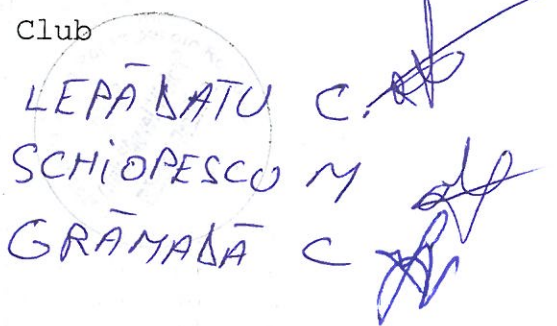 Club
LEPĂDATU C.
SCHIOPESCU M
GRĂMADĂ C